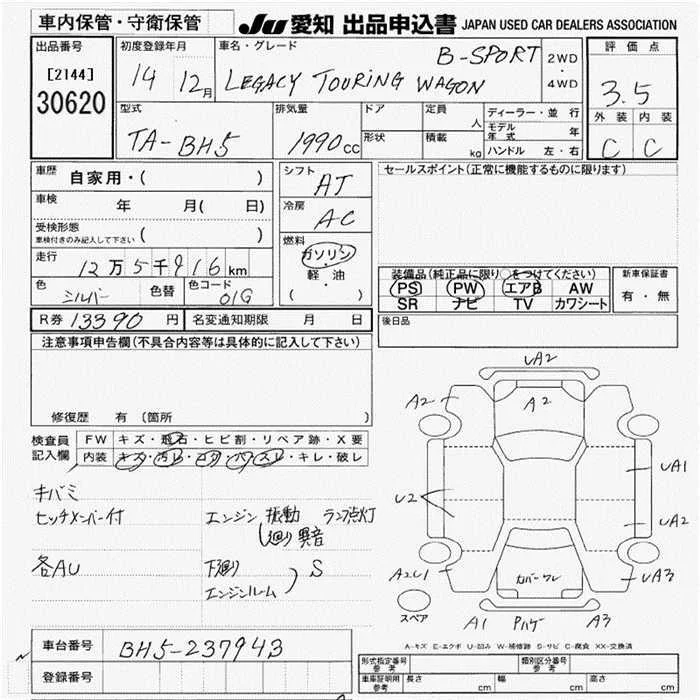 車内保管・守衛保管
JU 愛知 出品申込書 JAPAN USED CAR DEALERS ASSOCIATION
出品番号
[2144]
30620
初度登録年月
14 12月
車名・グレード
B-SPORT
LEGACY TOURING WAGON
2WD
・
4WD
評価点
3.5
外装 内装
C C
型式
TA-BH5
排気量
1990cc
ドア
形状
定員 人
積載 kg
ディーラー・並行
モデル年式 年
ハンドル 左・右
車歴 自家用・( )
車検 年 月( 日)
受検形態
車検付きのみ記入して下さい ( )
走行
12万5千916km
色 シルバー 色替
色コード 01G
シフト AT
冷房 AC
燃料
ガソリン
・
軽・油
( ・ )
セールスポイント(正常に機能するものに限ります)
装備品(純正品に限り○をつけてください)
PS PW エアB AW
SR ナビ TV カワシート
新車保証書
有・無
R券 13390円 名変通知期限 月 日
後日品
注意事項申告欄(不具合内容等は具体的に記入して下さい)
修復歴 有 (箇所 )
検査員記入欄
FW キズ・飛石・ヒビ割・リペア跡・X要
内装 キズ・汚レ・コゲ・ハズレ・キレ・破レ
キバミ
ヒッチメンバー付
エンジン 振動 ランプ点灯
廻り異音
各AU
下廻り
エンジンルーム
S
UA2
A2
A2
U2
UA1
UA2
A2U1
カバーワレ
UA3
スペア
A1 Pハゲ A3
A-キズ E-エクボ U-凹み W-補修跡 S-サビ C-腐食 XX-交換済
車台番号 BH5-237943
登録番号
型式指定番号 参考
類別区分番号 参考
車庫証明用 参考 長さ cm 幅 cm 高さ cm